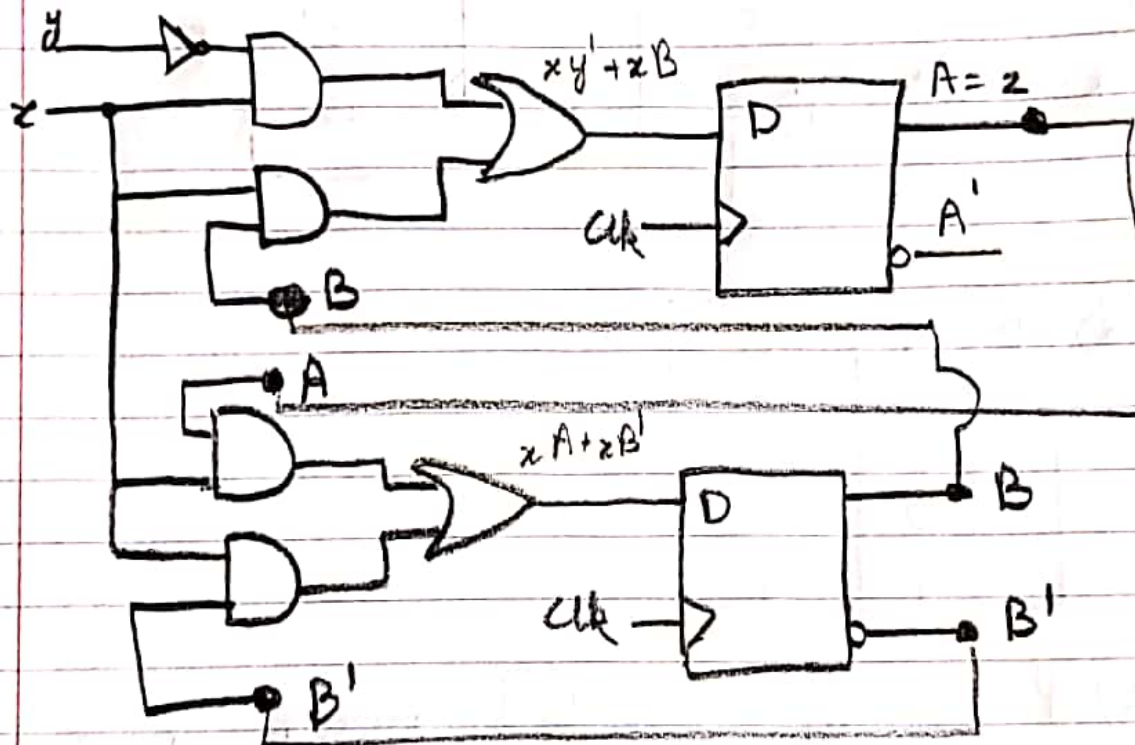 y
x
xy' + xB
D
A = z
A'
Clk
B
A
xA + xB'
D
B
Clk
B'
B'